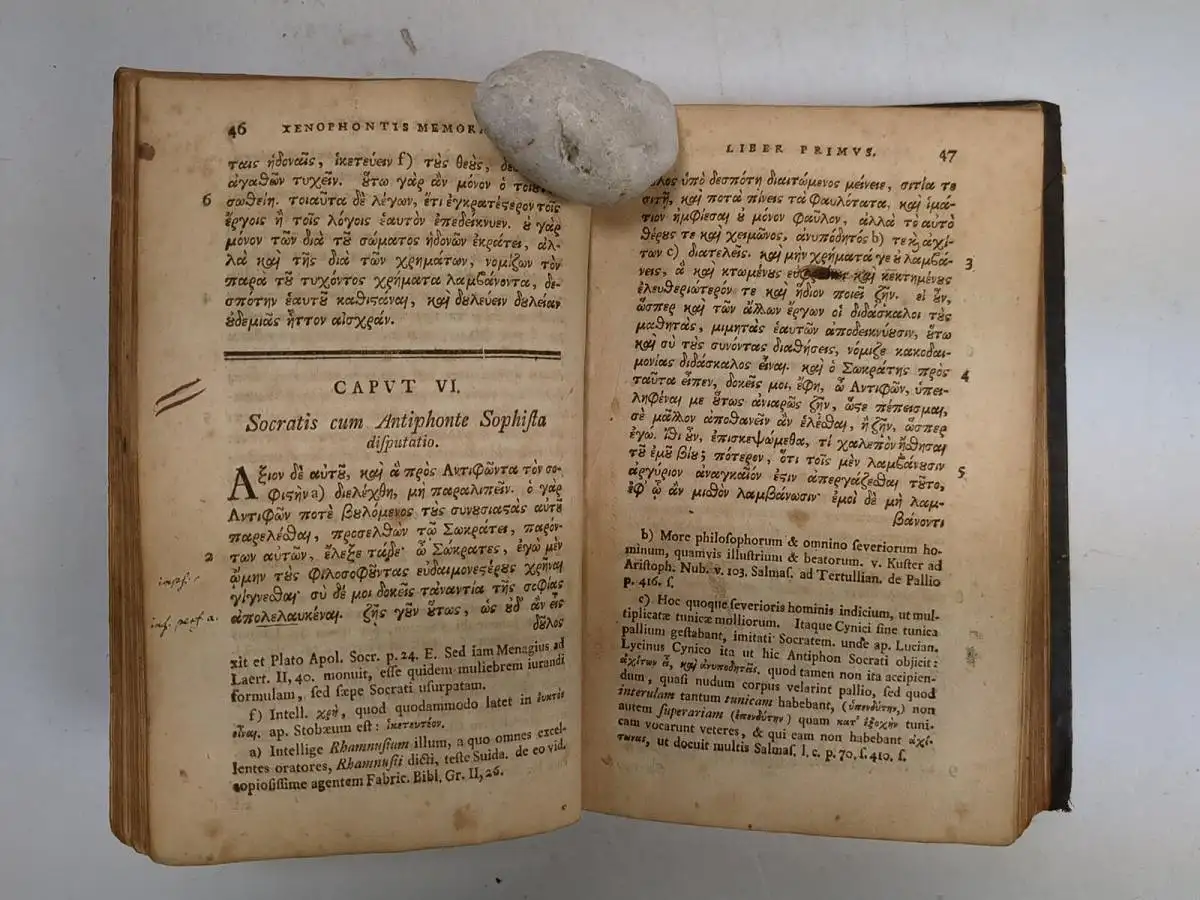 46 XENOPHONTIS MEMOR
ταις ἡδοναῖς, ἱκετεύειν f) τοὺς θεοὺς,
ἀγαθῶν τυχεῖν. οὕτω γὰρ ἂν μόνον ὁ
6 σωθείη. τοιαῦτα δὲ λέγων, ἔτι ἐγκρατέστερον τοῖς
ἔργοις ἢ τοῖς λόγοις ἑαυτὸν ἐπεδείκνυεν. οὐ γὰρ
μόνον τῶν διὰ τοῦ σώματος ἡδονῶν ἐκράτει, ἀλ-
λὰ καὶ τῆς διὰ τῶν χρημάτων, νομίζων τὸν
παρὰ τοῦ τυχόντος χρήματα λαμβάνοντα, δε-
σπότην ἑαυτοῦ καθιστάναι, καὶ δουλεύειν δουλείαν
οὐδεμιᾶς ἧττον αἰσχράν.
CAPVT VI.
Socratis cum Antiphonte Sophiſta
diſputatio.
Ἄξιον δὲ αὐτοῦ, καὶ ἃ πρὸς Ἀντιφῶντα τὸν σο-
φιστὴν a) διελέχθη, μὴ παραλιπεῖν. ὁ γὰρ
Ἀντιφῶν ποτὲ βουλόμενος τοὺς συνουσιαστὰς αὐτοῦ
παρελέσθαι, προσελθὼν τῷ Σωκράτει, παρόν-
2 των αὐτῶν, ἔλεξε τάδε· ὦ Σώκρατες, ἐγὼ μὲν
ᾤμην τοὺς φιλοσοφοῦντας εὐδαιμονεστέρους χρῆναι
γίγνεσθαι· σὺ δέ μοι δοκεῖς τἀναντία τῆς σοφίας
ἀπολελαυκέναι. ζῇς γοῦν οὕτως, ὡς οὐδ᾽ ἂν εἷς
δοῦλος
inf. perf a.
xit et Plato Apol. Socr. p. 24. E. Sed iam Menagius ad
Laert. II, 40. monuit, eſſe quidem muliebrem iurandi
formulam, ſed ſæpe Socrati uſurpatam.
f) Intell. χρή, quod quodammodo latet in εὐκτὸς
εἶναι. ap. Stobæum eſt: ἱκετευτέον.
a) Intellige Rhamnuſium illum, a quo omnes excel-
lentes oratores, Rhamnuſii dicti, teſte Suida. de eo vid.
copioſiſſime agentem Fabric. Bibl. Gr. II, 26.
c
LIBER PRIMVS. 47
ὑπὸ δεσπότῃ διαιτώμενος μείνειε, σιτία τε
σιτῇ, καὶ ποτὰ πίνεις τὰ φαυλότατα, καὶ ἱμά-
τιον ἠμφίεσαι οὐ μόνον φαῦλον, ἀλλὰ τὸ αὐτὸ
θέρους τε καὶ χειμῶνος, ἀνυπόδητός b) τε καὶ ἀχί-
των c) διατελεῖς. καὶ μὴν χρήματά γε οὐ λαμβά- 3
νεις, ἃ καὶ κτωμένους καὶ κεκτημένους
ἐλευθεριώτερόν τε καὶ ἥδιον ποιεῖ ζῆν. εἰ οὖν,
ὥσπερ καὶ τῶν ἄλλων ἔργων οἱ διδάσκαλοι τοὺς
μαθητὰς, μιμητὰς ἑαυτῶν ἀποδεικνύουσιν, οὕτω
καὶ σὺ τοὺς συνόντας διαθήσεις, νόμιζε κακοδαι-
μονίας διδάσκαλος εἶναι. καὶ ὁ Σωκράτης πρὸς 4
ταῦτα εἶπεν, δοκεῖς μοι, ἔφη, ὦ Ἀντιφῶν, ὑπει-
ληφέναι με οὕτως ἀνιαρῶς ζῆν, ὥστε πέπεισμαι,
σὲ μᾶλλον ἀποθανεῖν ἂν ἑλέσθαι, ἢ ζῆν, ὥσπερ
ἐγώ. ἴθι οὖν, ἐπισκεψώμεθα, τί χαλεπὸν ᾔσθησαι
τοῦ ἐμοῦ βίου; πότερον, ὅτι τοῖς μὲν λαμβάνουσιν 5
ἀργύριον ἀναγκαῖόν ἐστιν ἀπεργάζεσθαι τοῦτο,
ἐφ᾽ ᾧ ἂν μισθὸν λαμβάνωσιν· ἐμοὶ δὲ μὴ λαμ-
βάνοντι
b) More philoſophorum & omnino ſeveriorum ho-
minum, quamvis illuſtrium & beatorum. v. Kuſter ad
Ariſtoph. Nub. v. 103. Salmaſ. ad Tertullian. de Pallio
p. 416. ſ.
c) Hoc quoque ſeverioris hominis indicium, ut mul-
tiplicatæ tunicæ molliorum. Itaque Cynici ſine tunica
pallium geſtabant, imitati Socratem. unde ap. Lucian.
Lycinus Cynico ita ut hic Antiphon Socrati objicit:
ἀχίτων εἶ, καὶ ἀνυποδητεῖς. quod tamen non ita accipien-
dum, quaſi nudum corpus velarint pallio, ſed quod
interulam tantum tunicam habebant, (ὑπενδύτην,) non
autem ſuperariam (ἐπενδύτην) quam κατ᾽ ἐξοχὴν tuni-
cam vocarunt veteres, & qui eam non habebant ἀχί-
τωνας, ut docuit multis Salmaſ. l. c. p. 70. ſ. 410. ſ.